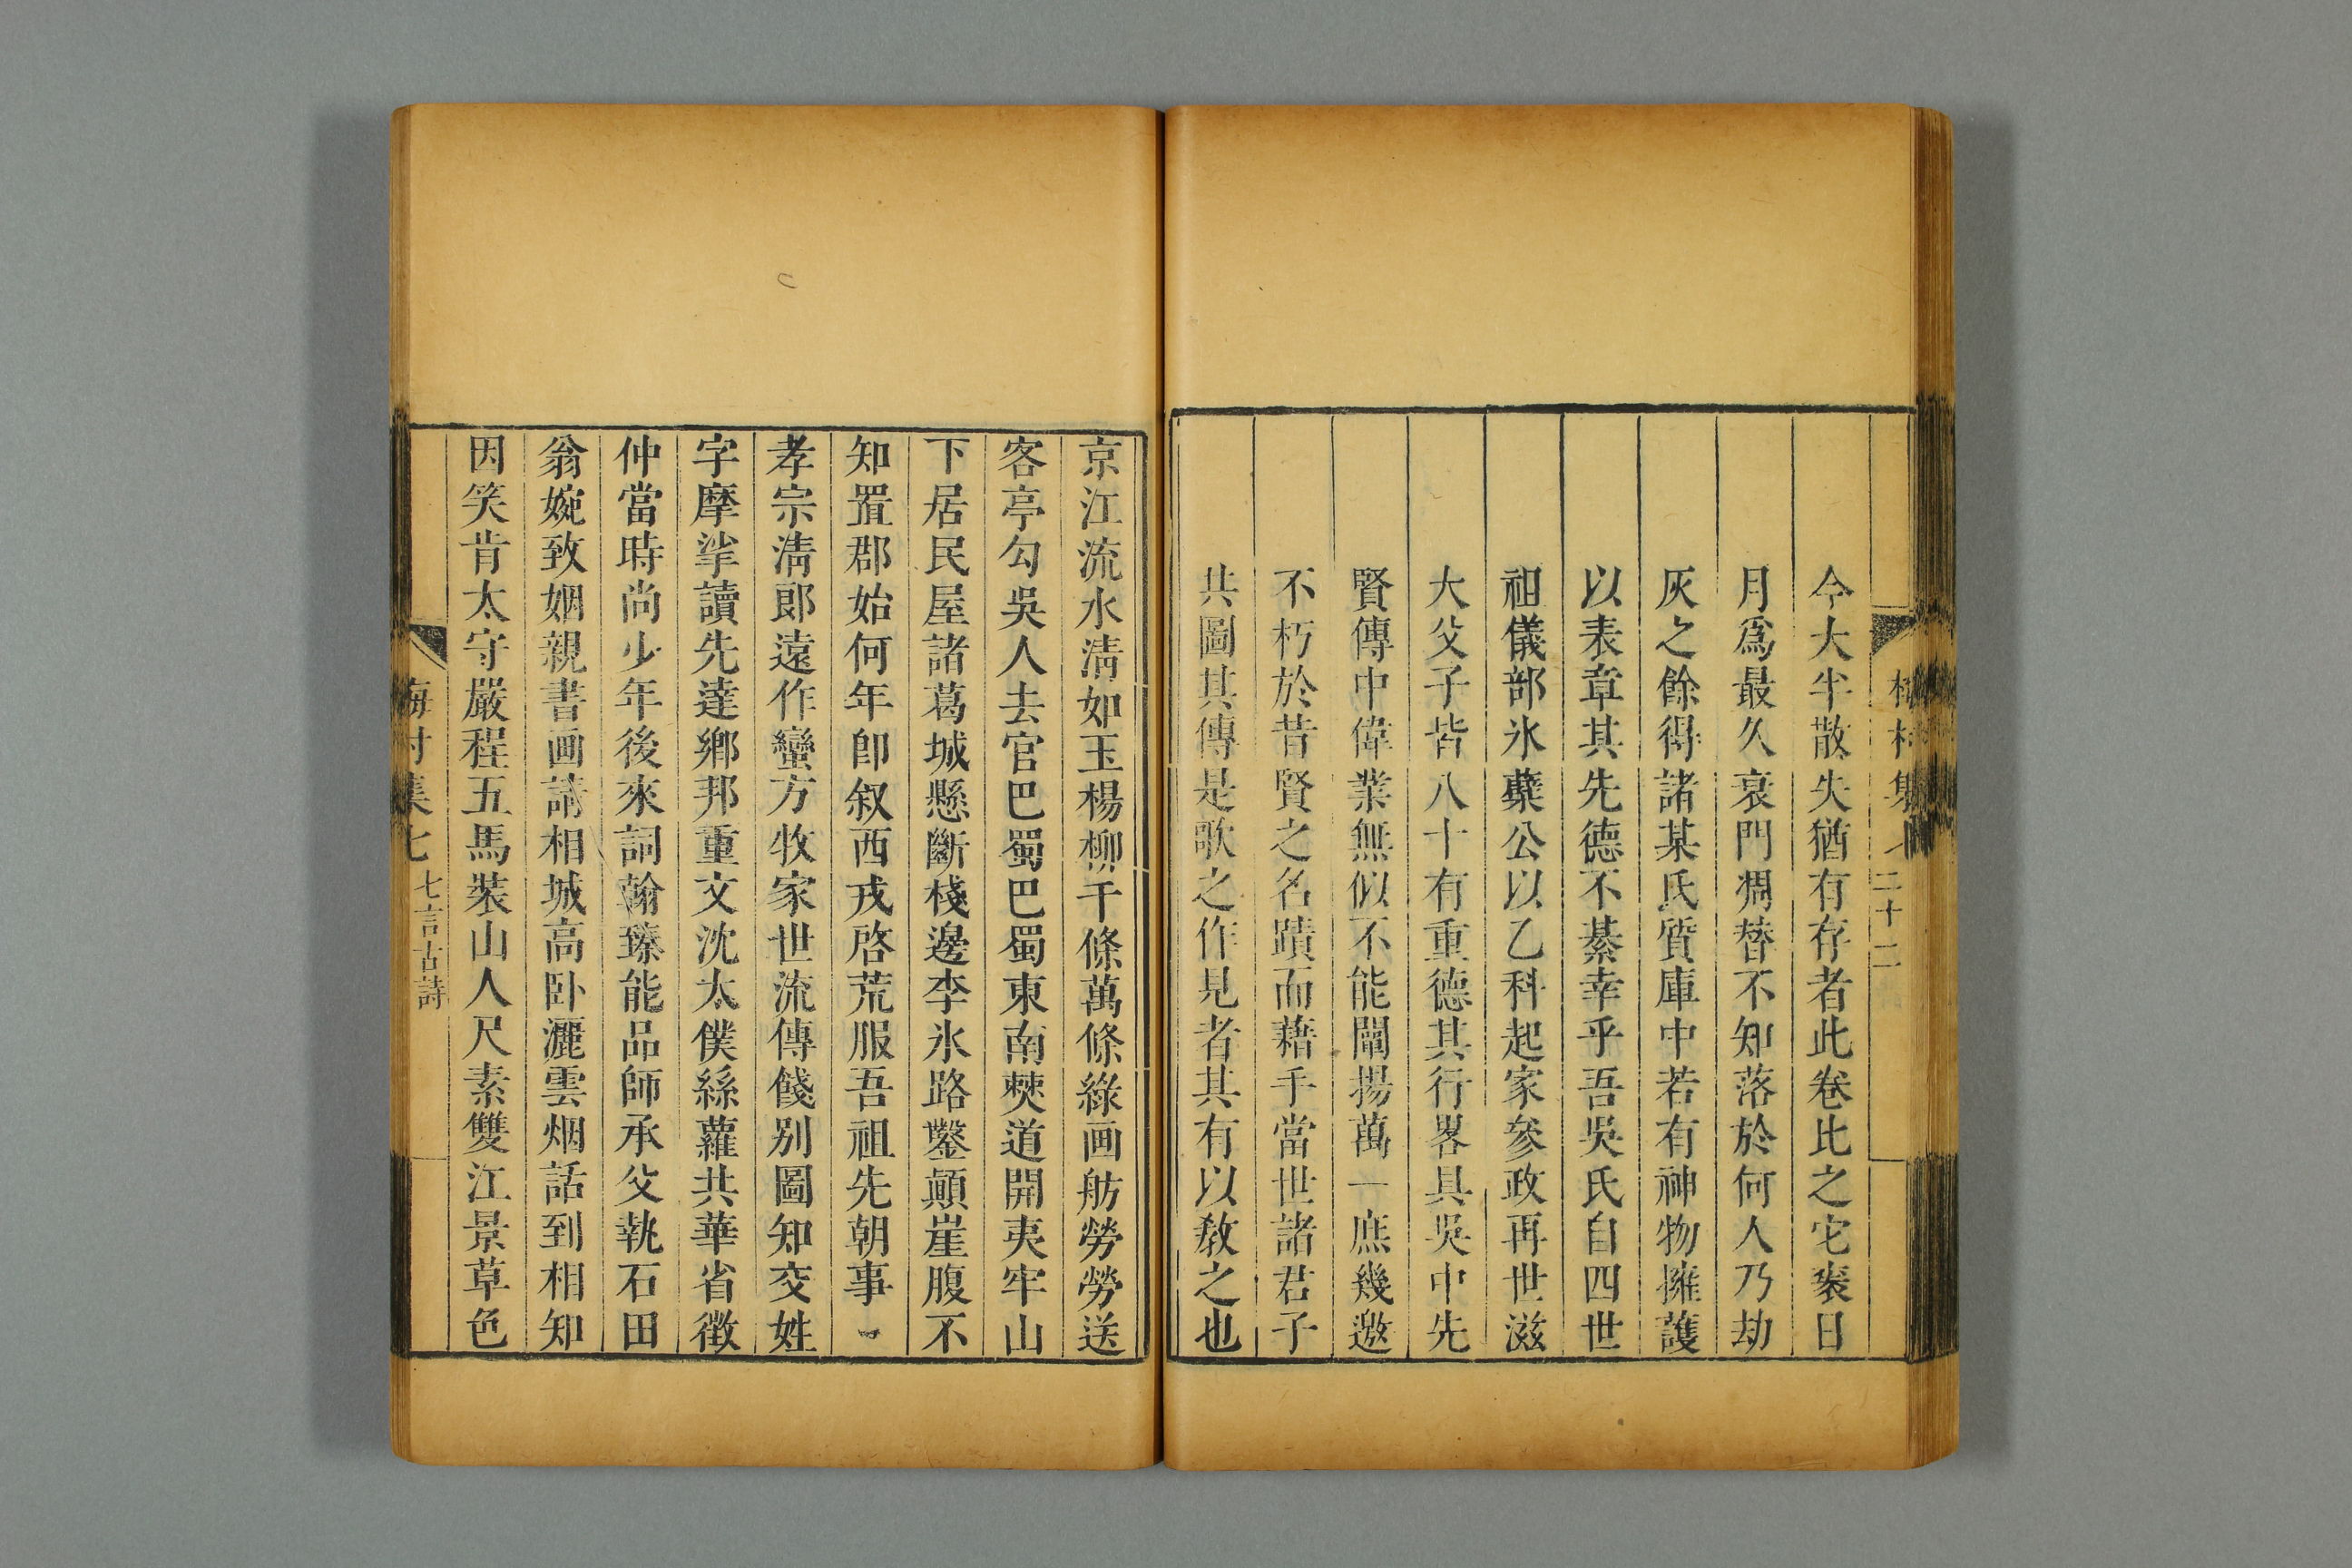 二十二
今大半散失猶有存者此卷比之它褏日
月爲最久衰門凋替不知落於何人乃劫
灰之餘得諸某氏質庫中若有神物擁護
以表章其先德不綦幸乎吾吳氏自四世
祖儀部氷蘗公以乙科起家參政再世滋
大父子皆八十有重德其行畧具吳中先
賢傳中偉業無似不能闡揚萬一庶幾邀
不朽於昔賢之名蹟而藉手當世諸君子
共圖其傳是歌之作見者其有以敎之也
京江流水淸如玉楊柳千條萬條綠画舫勞勞送
客亭勾吳人去官巴蜀巴蜀東南僰道開夷牢山
下居民屋諸葛城懸斷棧邊李氷路鑿顚崖腹不
知置郡始何年卽叙西戎啓荒服吾祖先朝事
孝宗淸郎遠作蠻方牧家世流傳餞別圖知交姓
字摩挲讀先達鄉邦重文沈太僕絲蘿共華省徵
仲當時尚少年後來詞翰臻能品師承父執石田
翁婉致姻親書画請相城高卧灑雲烟話到相知
因笑肯太守嚴程五馬裝山人尺素雙江景草色
梅村集七 七言古詩